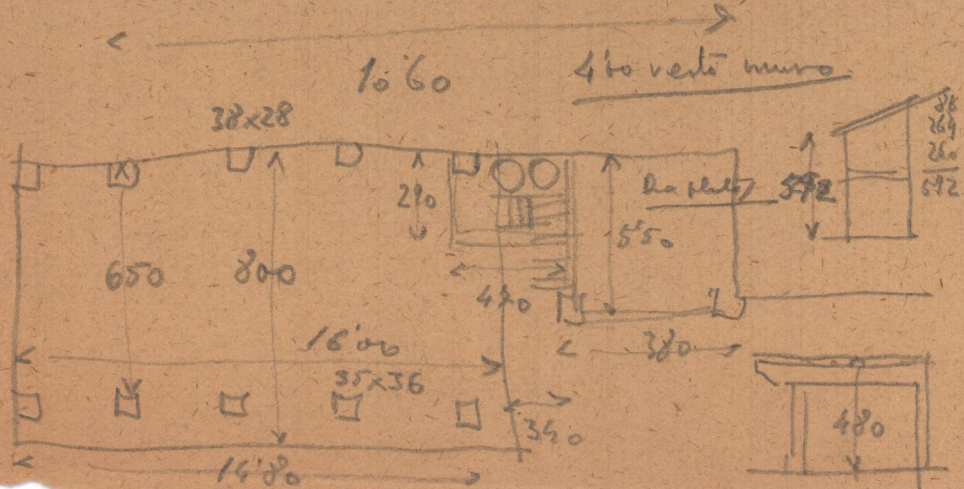 10'60
4'60 vestò muro
38x28
86
264
260
592
290
592
5'50
650
800
470
16'00
380
35x36
340
480
14'80